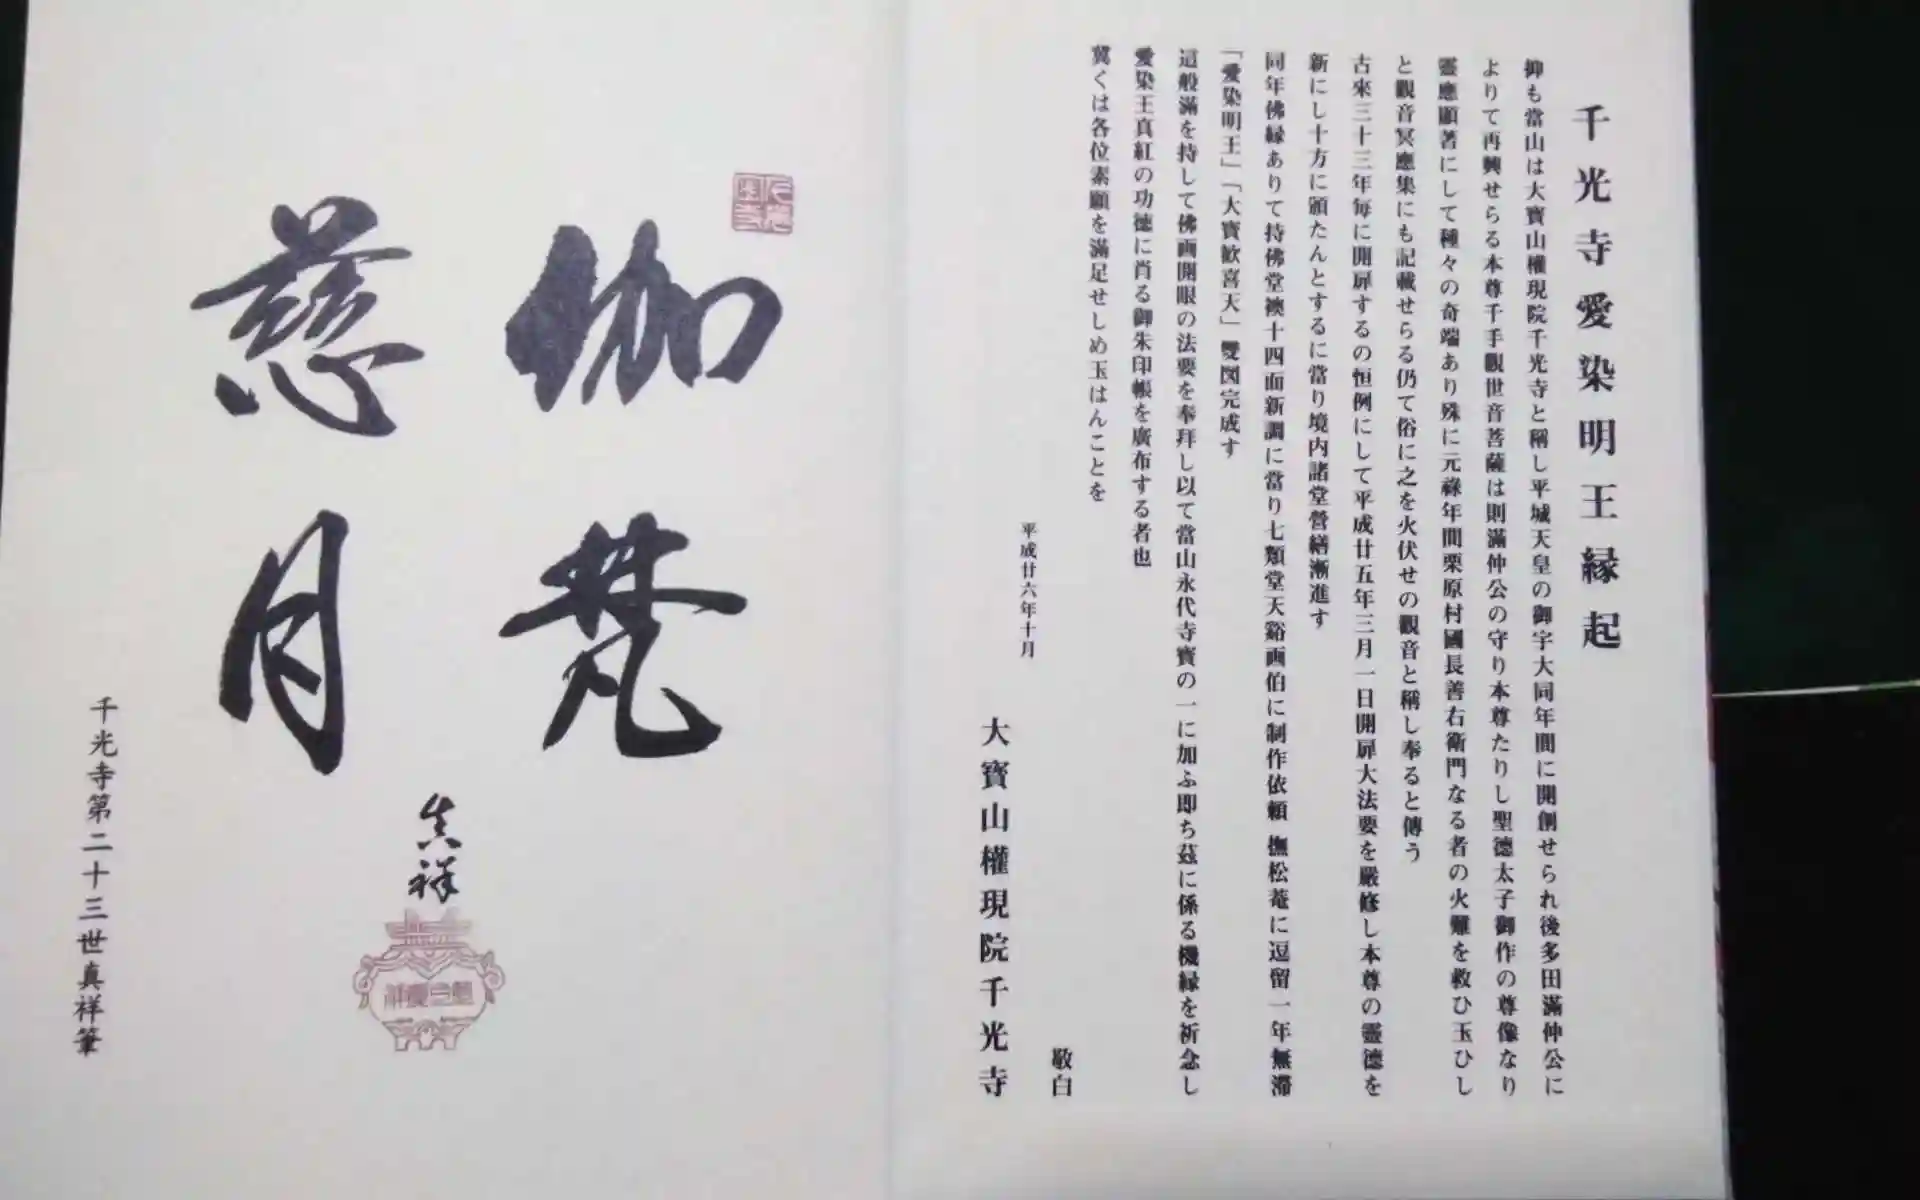 千光寺愛染明王縁起
抑も當山は大寶山權現院千光寺と稱し平城天皇の御宇大同年間に開創せられ後多田滿仲公に
よりて再興せらる本尊千手觀世音菩薩は則滿仲公の守り本尊たりし聖德太子御作の尊像なり
靈應顯著にして種々の奇端あり殊に元祿年間栗原村國長善右衛門なる者の火難を救ひ玉ひし
と觀音冥應集にも記載せらる仍て俗に之を火伏せの觀音と稱し奉ると傳う
古來三十三年毎に開扉するの恒例にして平成廿五年三月一日開扉大法要を嚴修し本尊の靈德を
新にし十方に頒たんとするに當り境内諸堂營繕漸進す
同年佛縁ありて持佛堂襖十四面新調に當り七類堂天谿画伯に制作依頼 撫松菴に逗留一年無滯
「愛染明王」「大寶歓喜天」雙図完成す
這般滿を持して佛画開眼の法要を奉拜し以て當山永代寺寶の一に加ふ即ち茲に係る機縁を祈念し
愛染王真紅の功德に肖る御朱印帳を廣布する者也
冀くは各位素願を滿足せしめ玉はんことを
敬白
平成廿六年十月
大寶山權現院千光寺
伽梵
慈月
真祥
千光寺第二十三世真祥筆